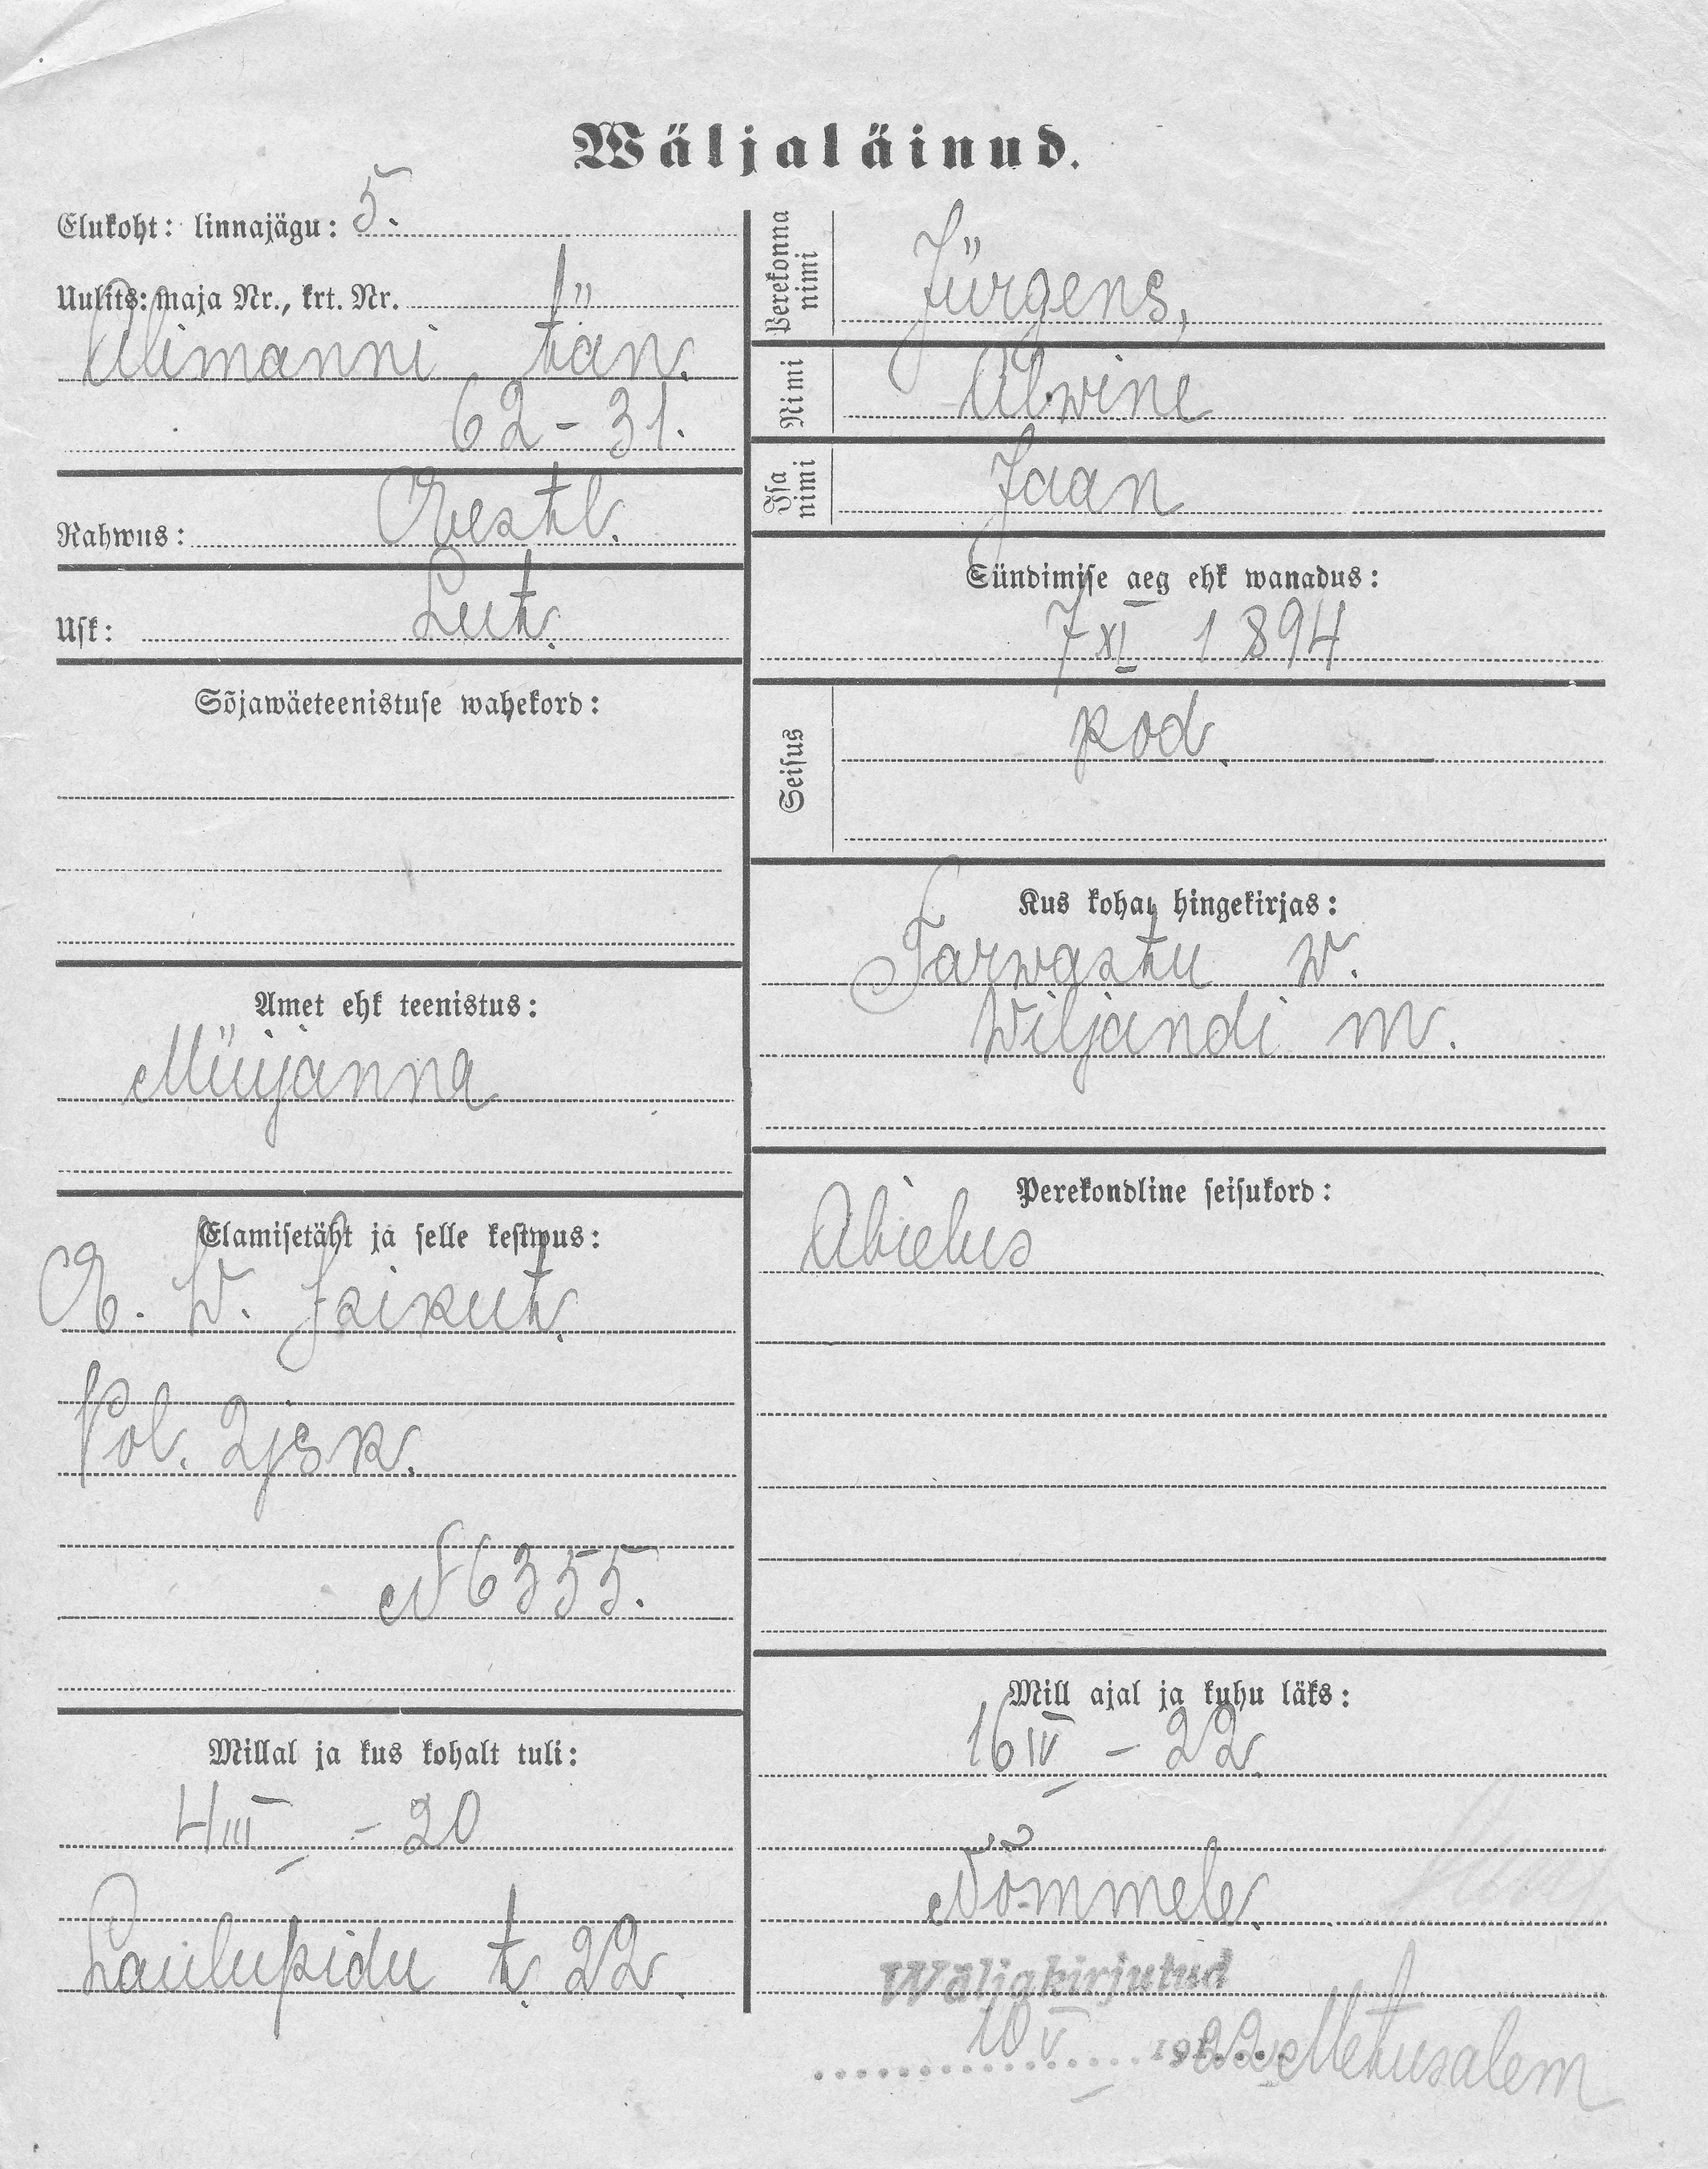 Wäljaläinud.
Elukoht: linnajägu: 5.
Uulits: maja Nr., krt. Nr.
Allmanni tän.
62-31.
Rahwus: Eestl.
Usk: Lut.
Sõjawäeteenistuse wahekord:
Amet ehk teenistus:
Müüjanna
Elamisetäht ja selle kestwus:
E. W. Isikut.
Pol. 2 jsk.
N 6355.
Millal ja kus kohalt tuli:
4 III - 20
Laulupidu t. 22
Perekonna nimi Jürgens,
Nimi Alwine
Isa nimi Jaan
Sündimise aeg ehk wanadus:
7 XI 1894
Seisus kod.
Kus kohal hingekirjas:
Tarwastu w.
Wiljandi m.
Perekondline seisukord:
Abielus
Mill ajal ja kuhu läks:
16 IV - 22.
Nõmmele.
Wäljakirjutud
10 V 1922 Metusalem